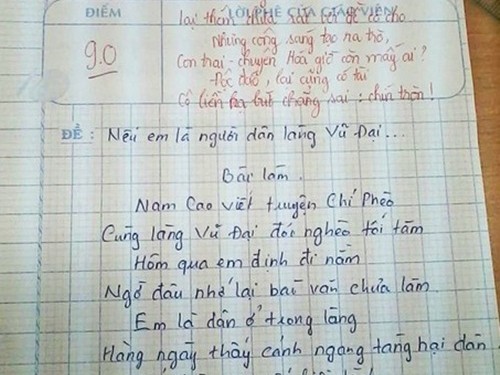 ĐIỂM
LỜI PHÊ CỦA GIÁO VIÊN
9.0
lại thêm
có cho
Nhưng cộng sáng tạo ra trò,
Con trai - chuyên Hoá giờ còn mấy ai?
Độc đáo, lại cũng có tài
Cô liền hạ bút chẳng sai: chín tròn!
ĐỀ: Nếu em là người dân làng Vũ Đại...
Bài làm.
Nam Cao viết truyện Chí Phèo
Cùng làng Vũ Đại đói nghèo tối tăm
Hôm qua em định đi nằm
Ngờ đâu nhớ lại bài văn chưa làm
Em là dân ở trong làng
Hàng ngày thấy cảnh ngang tàng hại dân